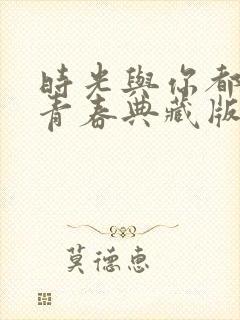 時光與你都
青春典藏版
莫德惠